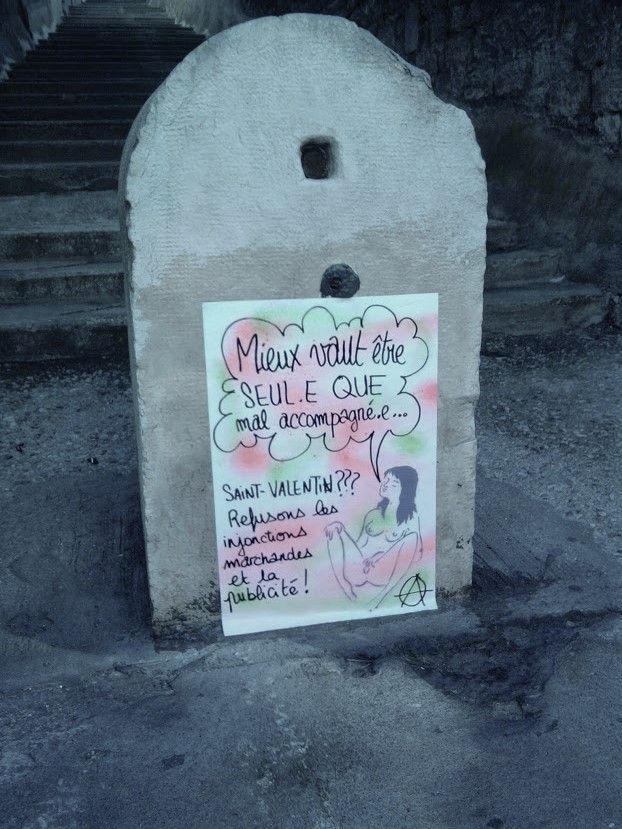 Mieux vaut être
SEUL.E QUE
mal accompagné.e...
SAINT-VALENTIN???
Refusons les
injonctions
marchandes
et la
publicité!